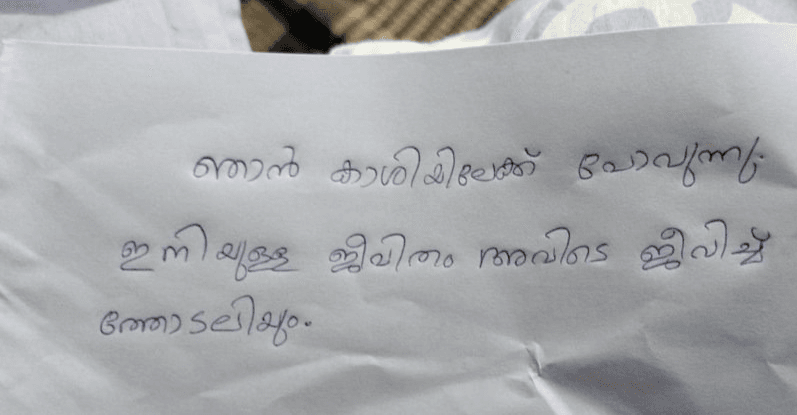 ഞാൻ കാശിയിലേക്ക് പോവുന്നു.
ഇനിയുള്ള ജീവിതം അവിടെ ജീവിച്ച്
ത്തോടലിയും.